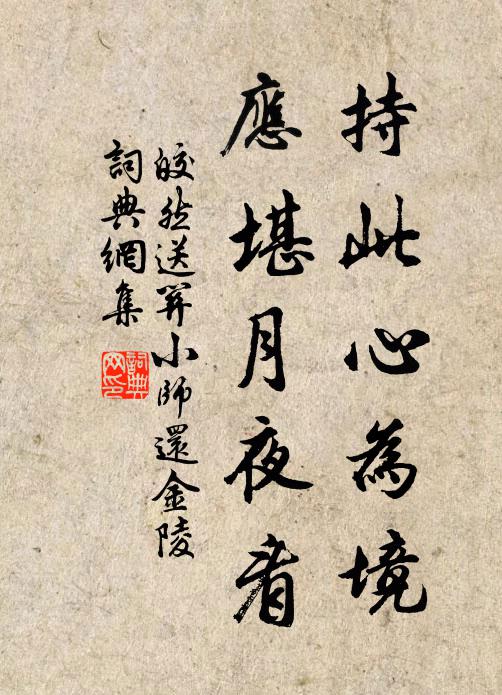 持此心為境
應堪月夜看
皎然送關小師還金陵
詞典網集
詞典網印